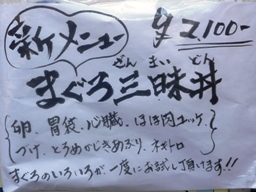 新メニュー ¥2100-
ざんまい どん
まぐろ三昧丼
卵、胃袋、心臓、ほほ肉ユッケ、
づけ、とろめかじきあぶり、ネギトロ
まぐろのいろいろが一度にお試し頂けます!!